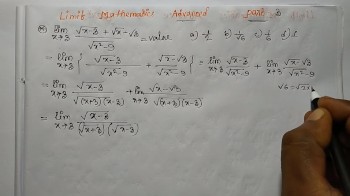 Limit Mathematics Advanced Part
lim x→3 √x-3 + √x - √3 / √x²-9 = value a) -1/2 b) 1/√6 c) 1/6 d) 1
= lim x→3 { √x-3 / √x²-9 + √x - √3 / √x²-9 } = lim x→3 √x-3 / √x²-9 + lim x→3 √x - √3 / √x²-9
= lim x→3 √x-3 / √(x+3)(x-3) + lim x→3 √x - √3 / √(x+3)(x-3)
√6 = √2
= lim x→3 √x-3 / (√x+3)(√x-3)